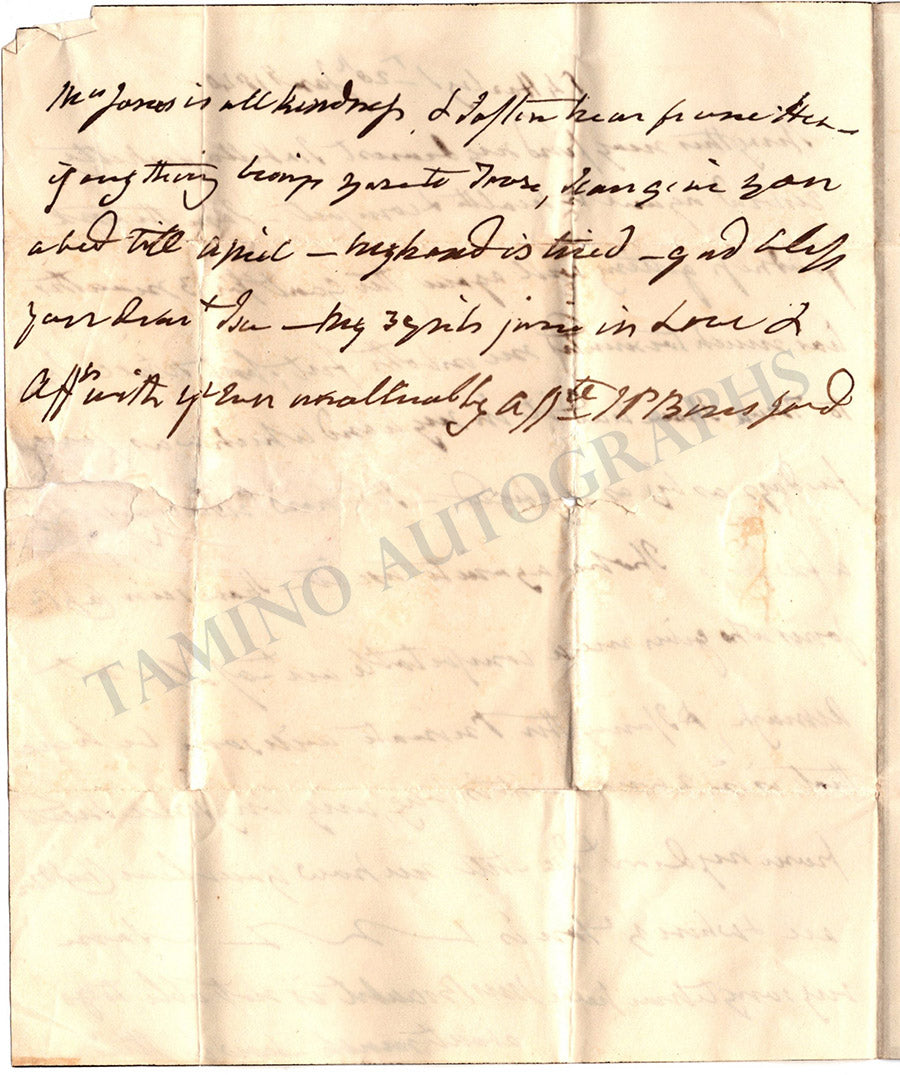 Mrs Jones is all kindness, & I often hear from Her –
if any thing brings you to Town, I can give you
a bed till April – my hand is tired – god bless
your dear – My 3 girls join in Love &
Affn with yr Ever unalterably Affte JP Beresford
TAMINO AUTOGRAPHS